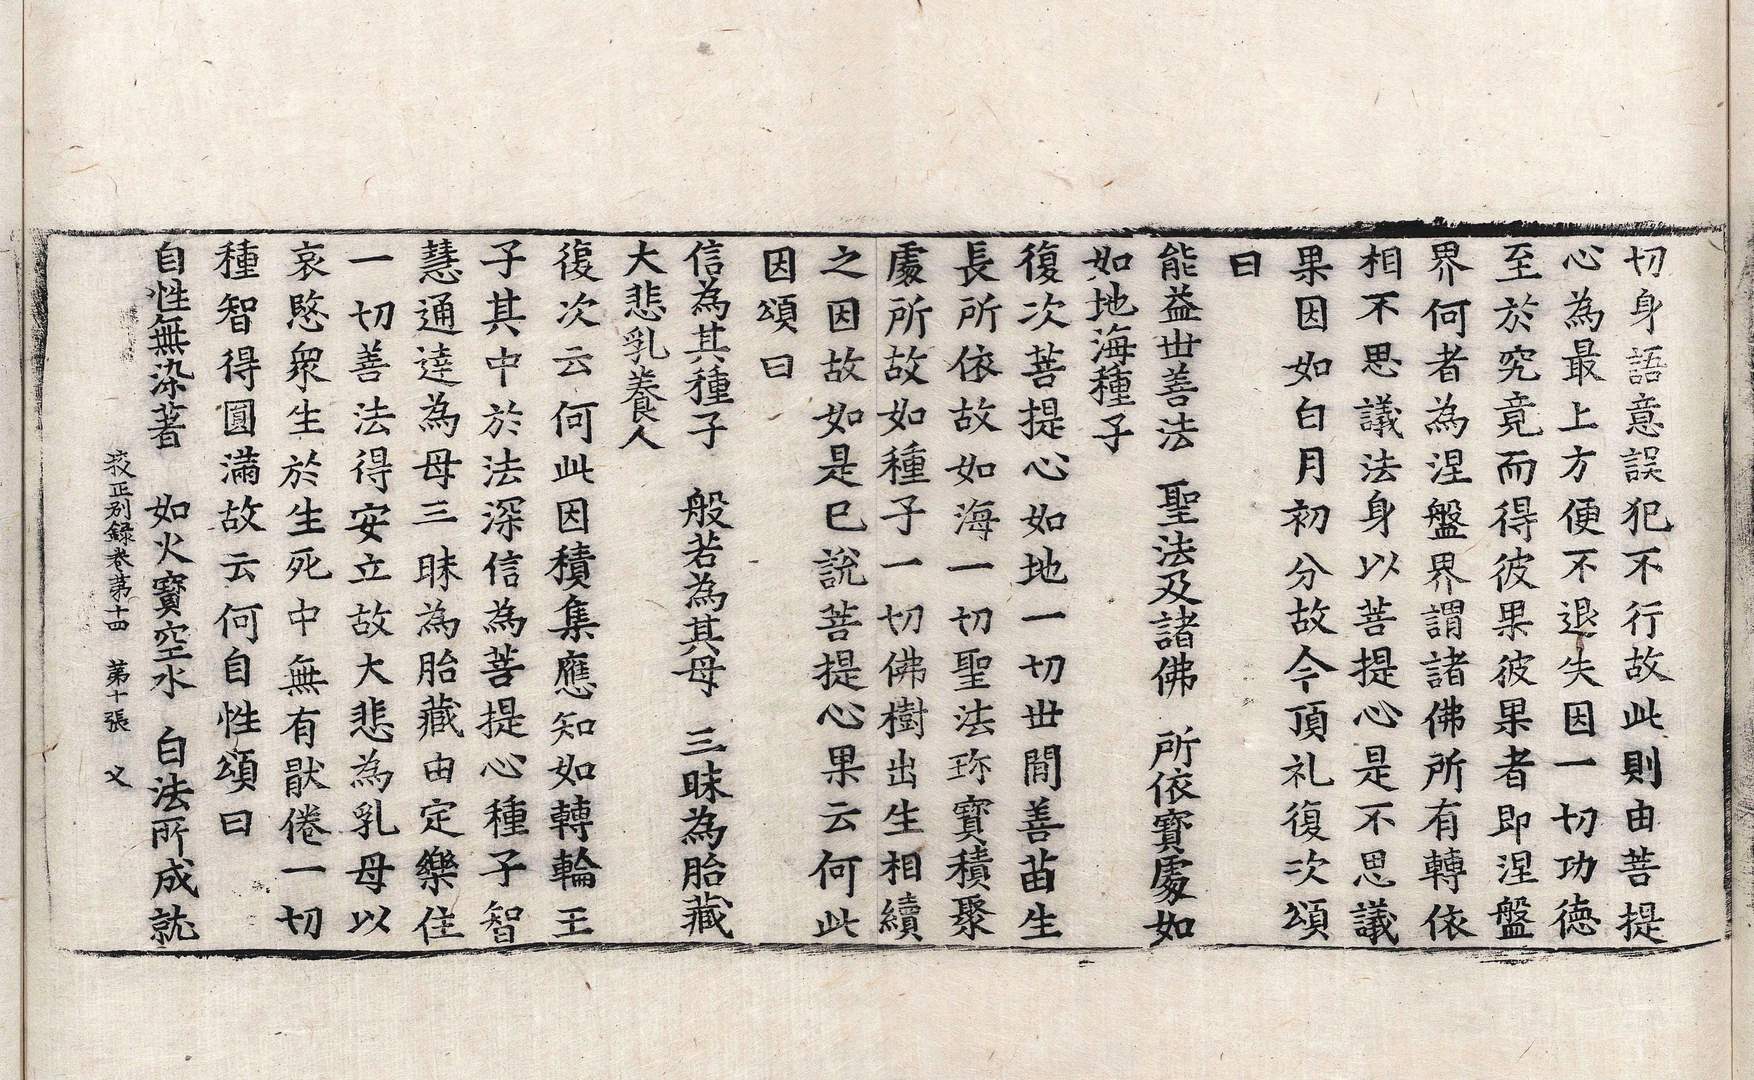 切身語意誤犯不行故此則由菩提
心為最上方便不退失因一切功德
至於究竟而得彼果彼果者即涅盤
界何者為涅盤界謂諸佛所有轉依
相不思議法身以菩提心是不思議
果因如白月初分故今頂礼復次頌
曰
能益世善法　聖法及諸佛　所依寶處如
如地海種子
復次菩提心如地一切世間善苗生
長所依故如海一切聖法珎寶積聚
處所故如種子一切佛樹出生相續
之因故如是已說菩提心果云何此
因頌曰
信為其種子　般若為其母　三昧為胎藏
大悲乳養人
復次云何此因積集應知如轉輪王
子其中於法深信為菩提心種子智
慧通達為母三昧為胎藏由定樂住
一切善法得安立故大悲為乳母以
哀愍衆生於生死中無有猒倦一切
種智得圓滿故云何自性頌曰
自性無染著　如火寶空水　白法所成就
挍正別錄卷苐十四　苐十張　父